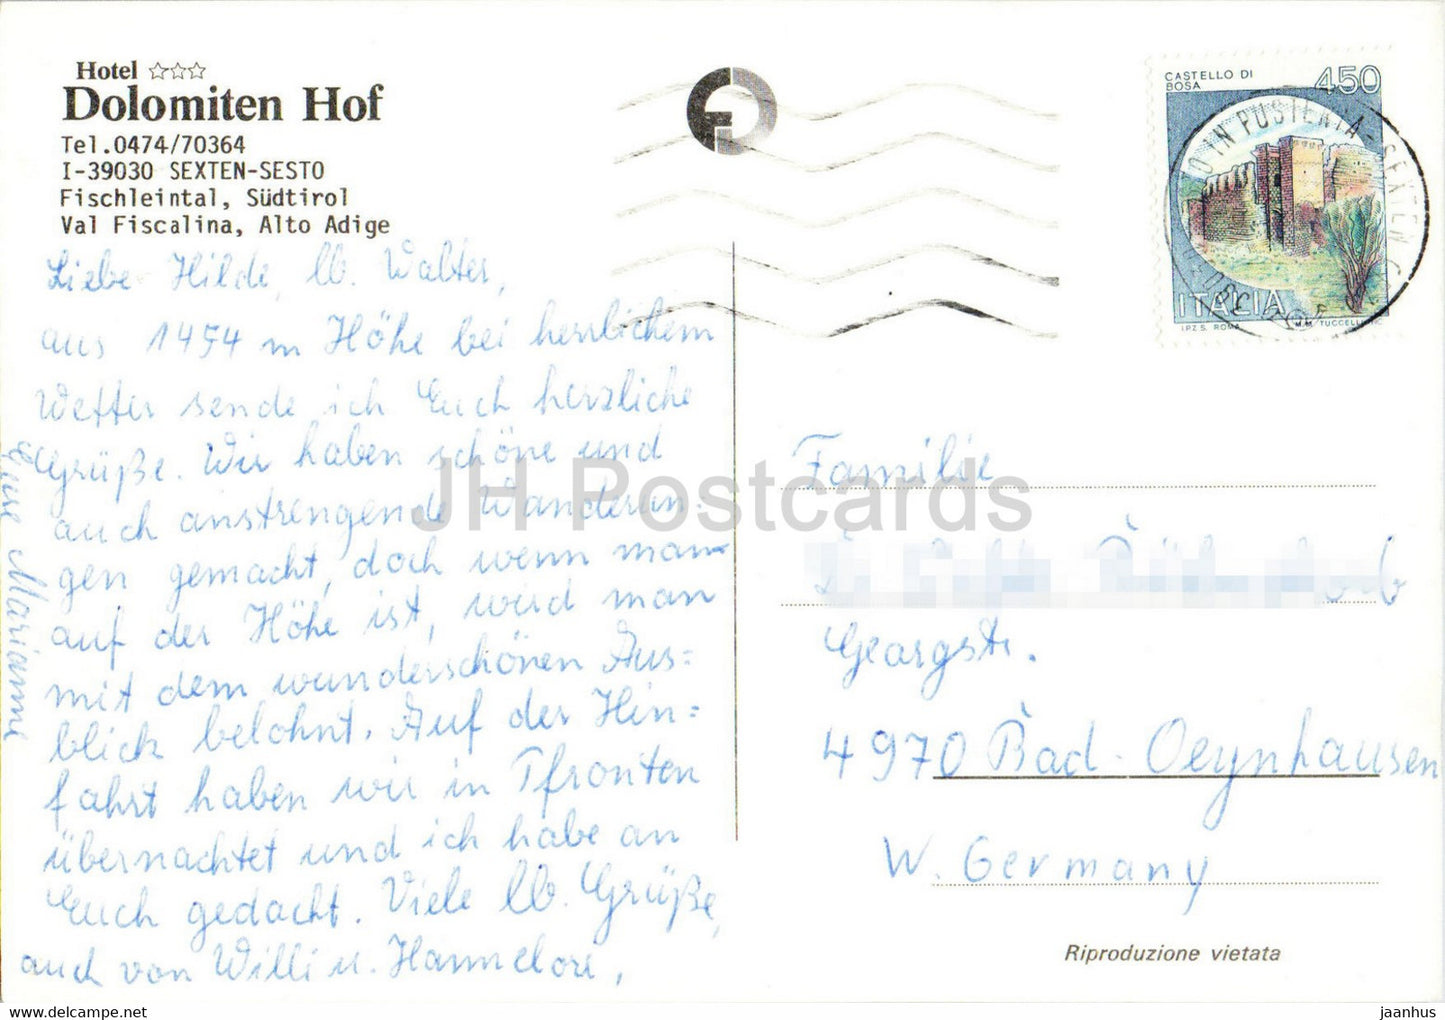 Hotel ☆☆☆
Dolomiten Hof
Tel.0474/70364
I-39030 SEXTEN-SESTO
Fischleintal, Südtirol
Val Fiscalina, Alto Adige
Liebe Hilde, lb. Walter,
aus 1454 m Höhe bei herrlichem
Wetter sende ich Euch herzliche
Grüße. Wir haben schöne und
auch anstrengende Wanderun=
gen gemacht, doch wenn man
auf der Höhe ist, wird man
mit dem wunderschönen Aus=
blick belohnt. Auf der Hin=
fahrt haben wir in Pfronten
übernachtet und ich habe an
Euch gedacht. Viele lb. Grüße,
auch von Willi u. Hannelore,
Eure Marianne
CASTELLO DI
BOSA
450
ITALIA
I.P.Z.S. ROMA
M.M. TUCCELLI INC.
IN PUSTERIA - SEXTEN
Familie
Georgstr.
4970 Bad-Oeynhausen
W. Germany
Riproduzione vietata
JH Postcards
jaanhus